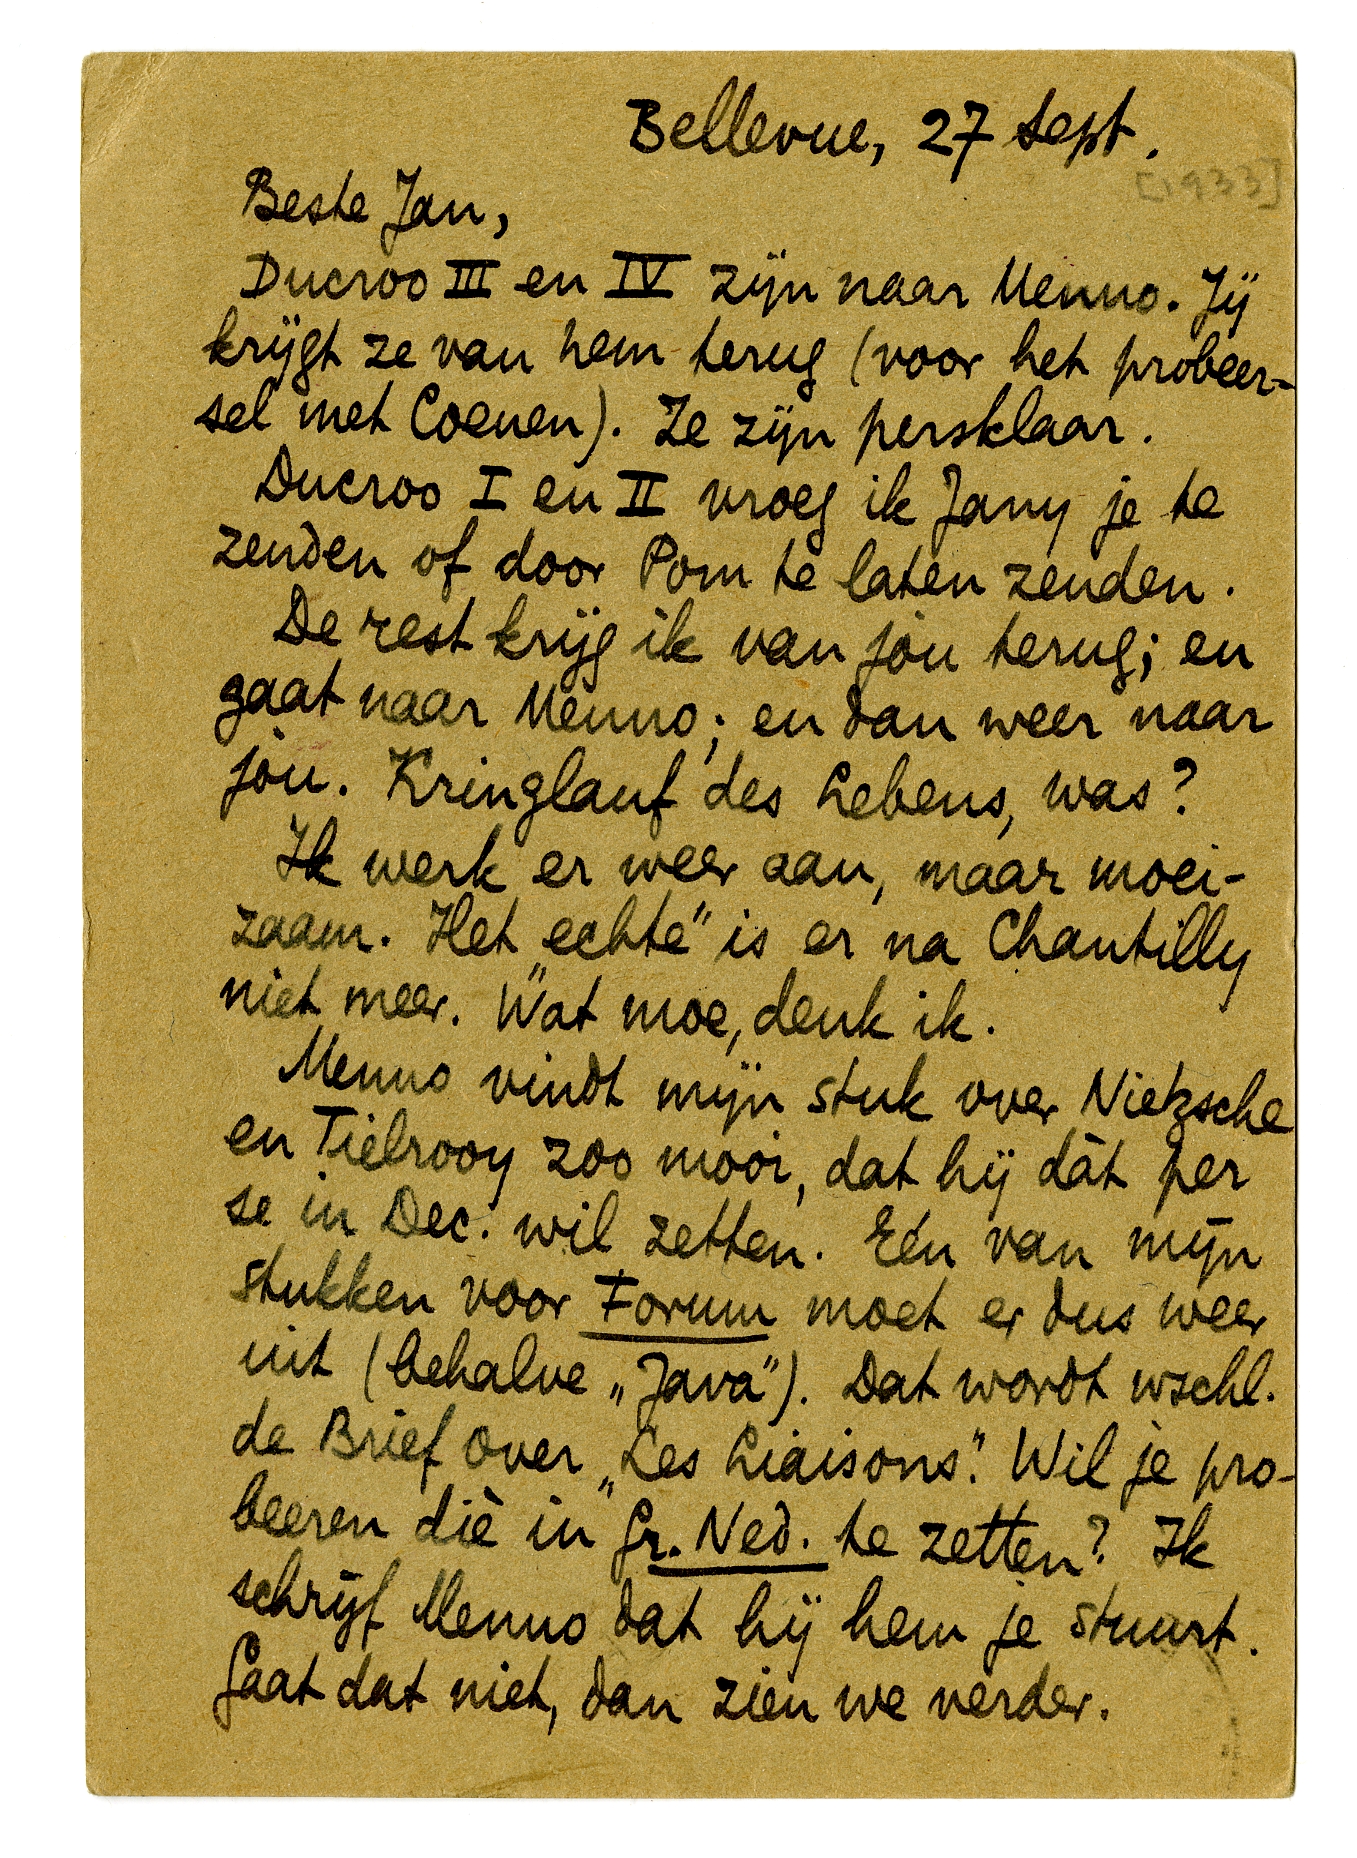 Bellevue, 27 Sept.
[1933]
Beste Jan,
Ducroo III en IV zijn naar Menno. Jij
krijgt ze van hem terug (voor het probeer-
sel met Coenen). Ze zijn persklaar.
Ducroo I en II vroeg ik Jany je te
zenden of door Pom te laten zenden.
De rest krijg ik van jòu terug; en
gaat naar Menno; en dan weer naar
jòu. Kringlauf des Lebens, was?
Ik werk er weer aan, maar moei-
zaam. Het „echte” is er na Chantilly
niet meer. Wat moe, denk ik.
Menno vindt mijn stuk over Nietzsche
en Tielrooy zoo mooi, dat hij dàt per
se in Dec. wil zetten. Eén van mijn
stukken voor Forum moet er dus weer
uit (behalve „Java”). Dat wordt wschl.
de Brief over „Les Liaisons”. Wil je pro-
beeren diè in Gr. Ned. te zetten? Ik
schrijf Menno dat hij hem je stuurt.
Gaat dat niet, dan zien we verder.